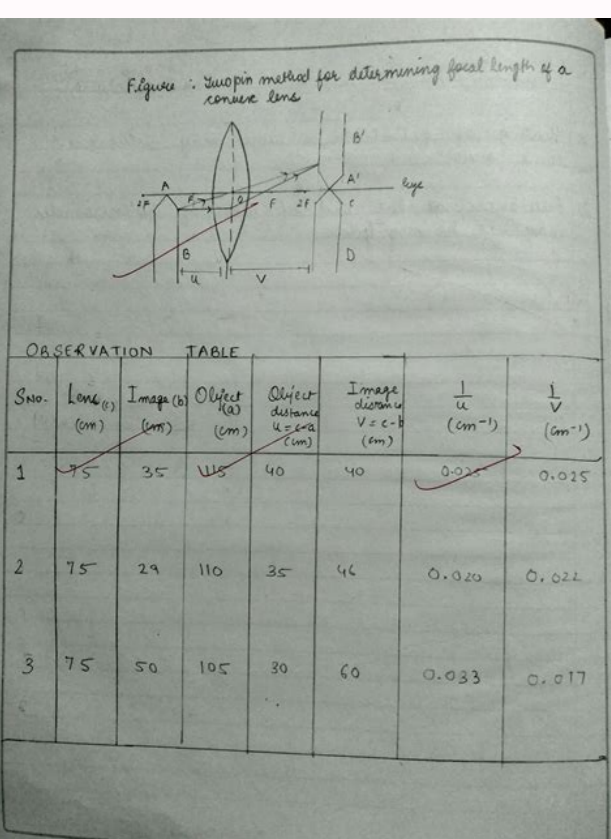 Figure : Two pin method for determining focal length of a
convex lens
B'
A A' Eye
2F F O F 2F C
B D
u V
OBSERVATION TABLE
SNO. Lens (c) (cm) Image (b) (cm) Object (a) (cm) Object distance u = c-a (cm) Image distance V = c-b (cm) 1/u (cm-1) 1/V (cm-1)
1 75 35 115 40 40 0.025 0.025
2 75 29 110 35 46 0.020 0.022
3 75 50 105 30 60 0.033 0.017